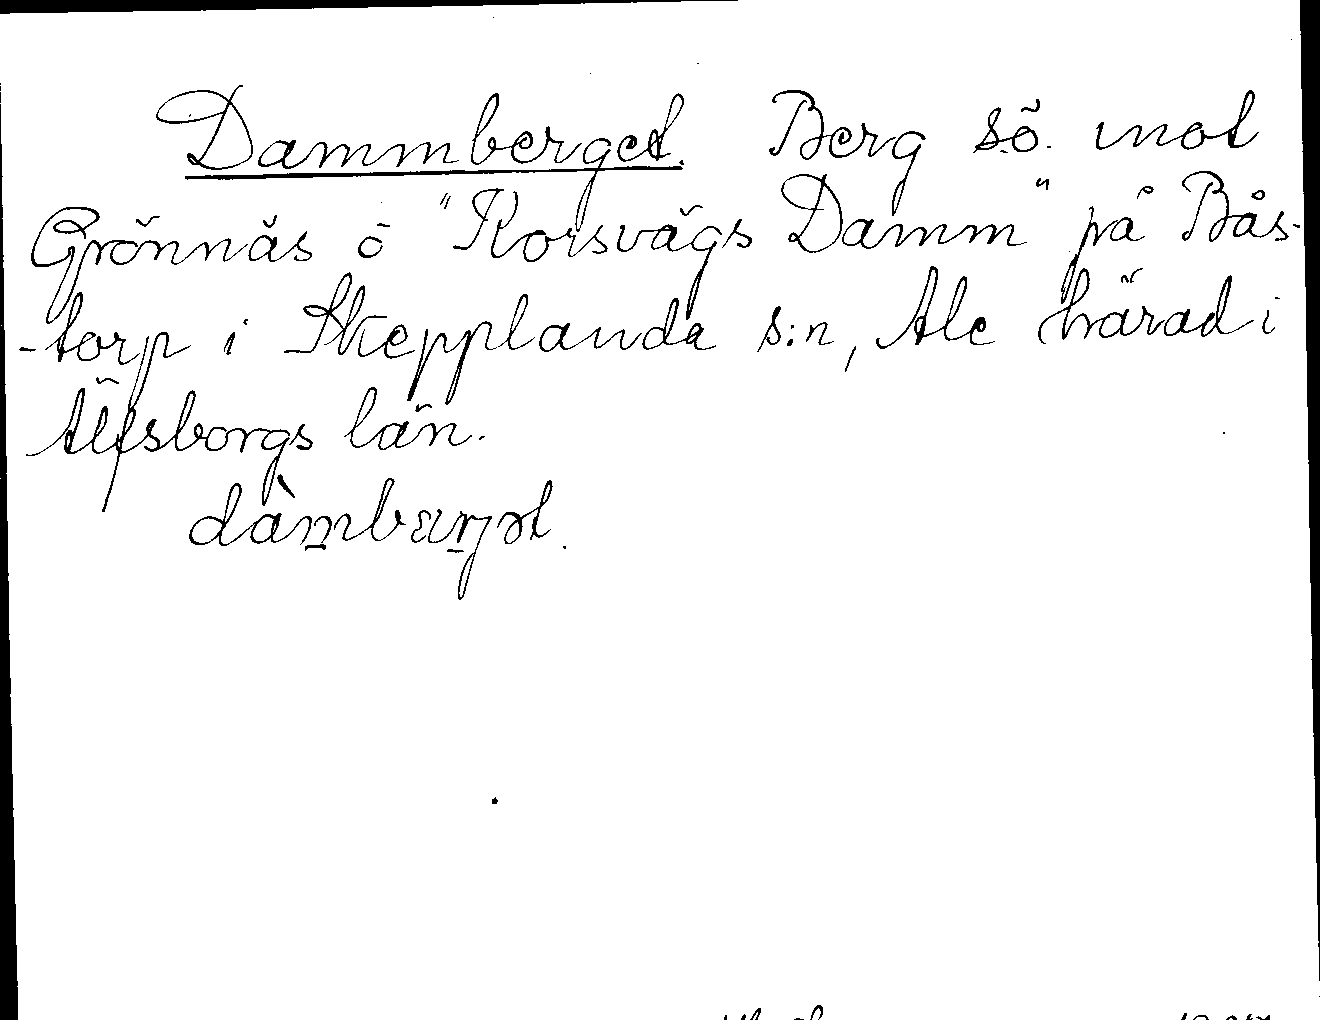 Dammberget. Berg sö. mot
Grönnäs ö "Korsvägs Damm" på Bås-
-torp i Skepplanda s:n, Ale härad i
Älfsborgs län.
dàmbærjət.